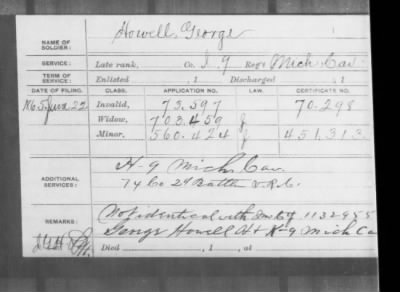 NAME OF SOLDIER: Howell, George
SERVICE: Late rank, Co. I 9 Reg't Mich Cav.
TERM OF SERVICE: Enlisted , 1 Discharged , 1
DATE OF FILING. CLASS. APPLICATION NO. LAW. CERTIFICATE NO.
1865 June 22 Invalid, 73.597 70.298
Widow, 703.459
Minor, 560.424 451.313
ADDITIONAL SERVICES: H-9 Mich. Cav.
74 Co 2d Battn V.R.C.
REMARKS: Not identical with 1132955
George Howell H + K-9 Mich Ca
Died , 1 , at